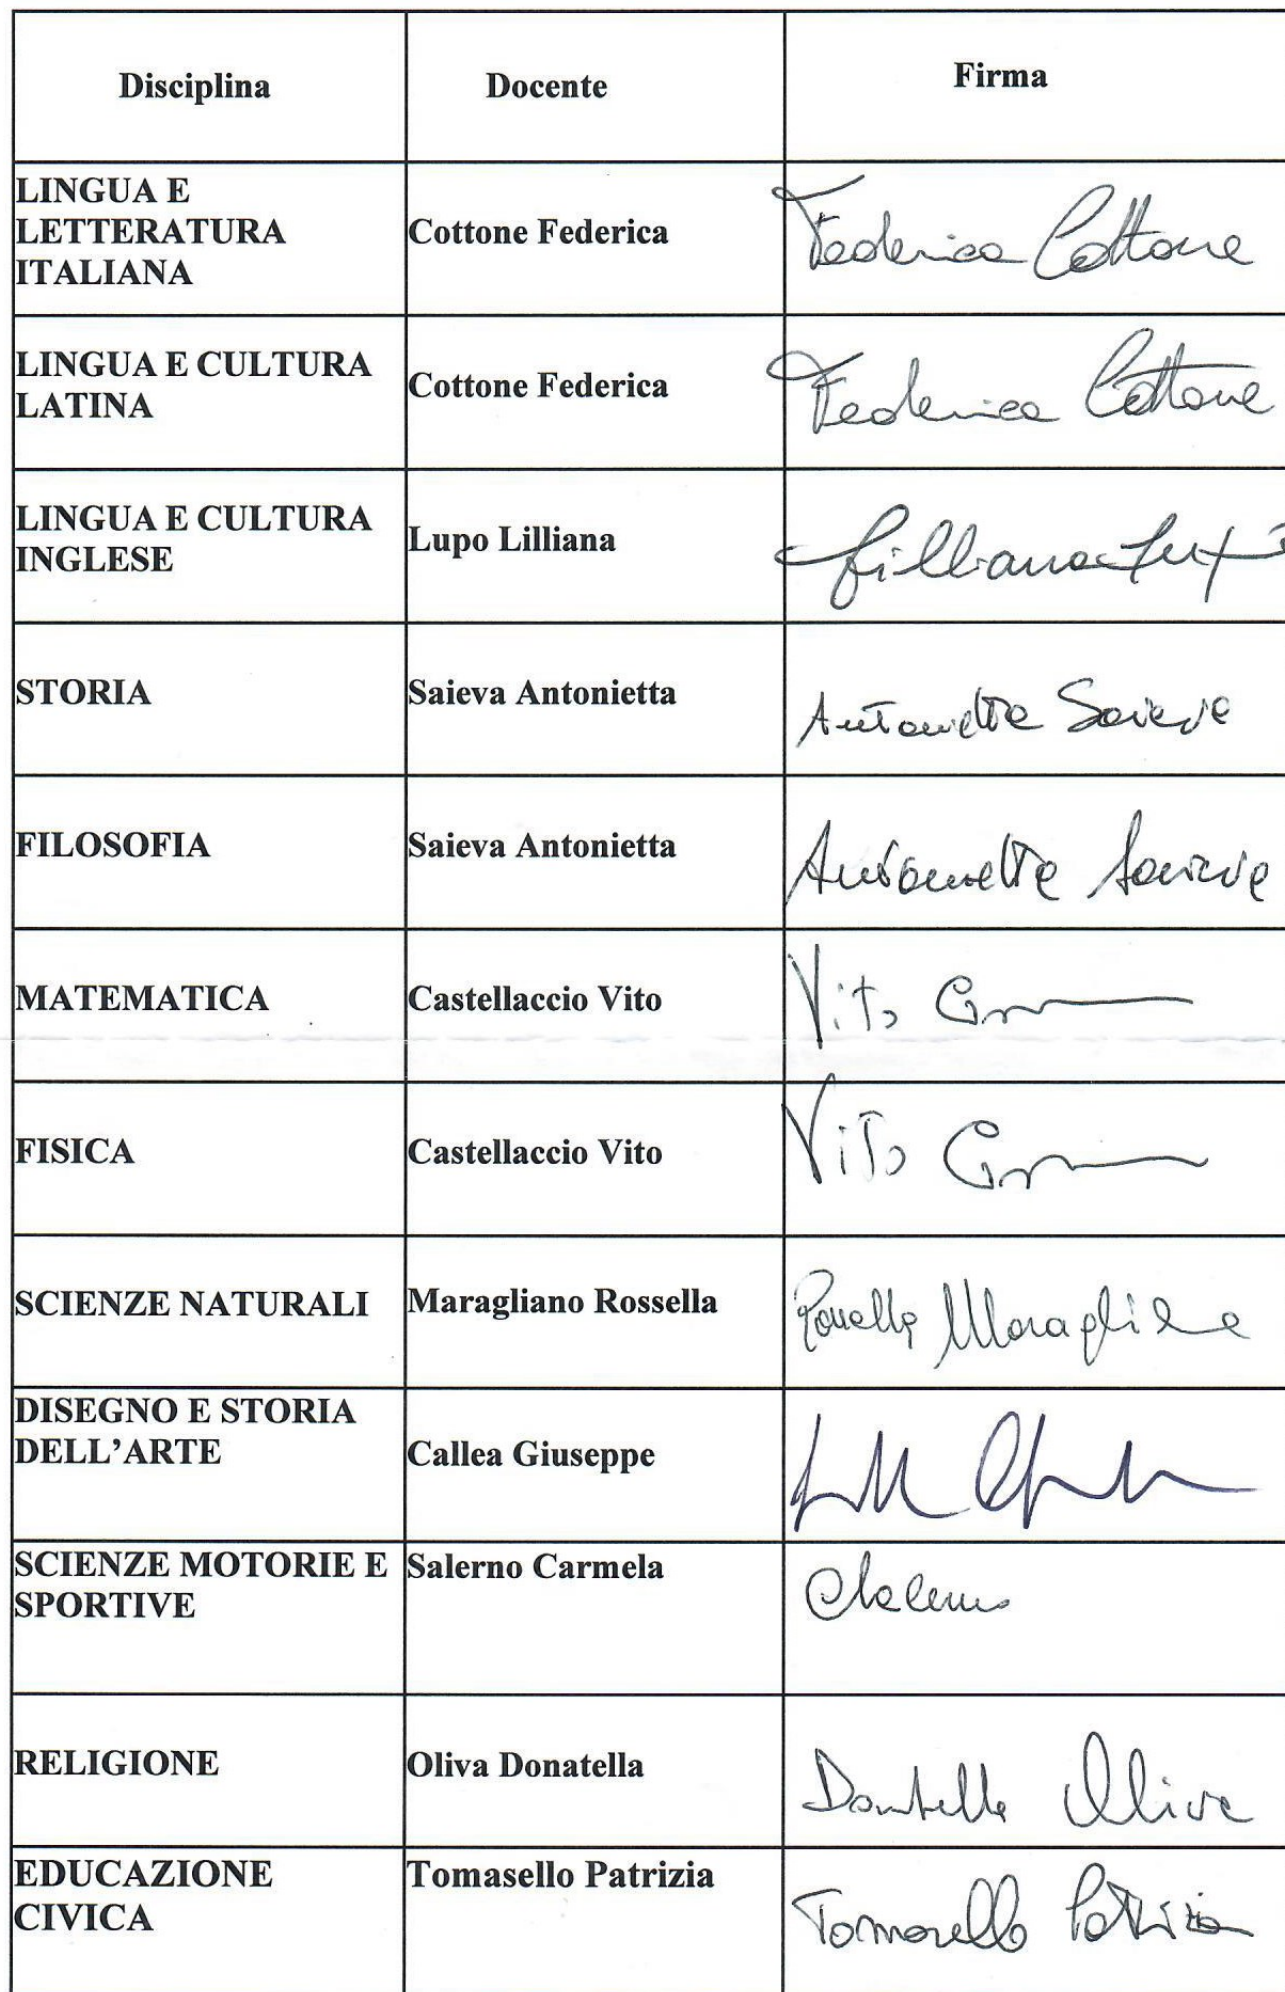 Disciplina Docente Firma
LINGUA E
LETTERATURA
ITALIANA
Cottone Federica Federica Cottone
LINGUA E CULTURA
LATINA
Cottone Federica Federica Cottone
LINGUA E CULTURA
INGLESE
Lupo Lilliana Lilliana Lupo
STORIA Saieva Antonietta Antonietta Saieva
FILOSOFIA Saieva Antonietta Antonietta Saieva
MATEMATICA Castellaccio Vito Vito
FISICA Castellaccio Vito Vito
SCIENZE NATURALI Maragliano Rossella Rossella Maragliano
DISEGNO E STORIA
DELL’ARTE
Callea Giuseppe
SCIENZE MOTORIE E
SPORTIVE
Salerno Carmela CSalerno
RELIGIONE Oliva Donatella Donatella Oliva
EDUCAZIONE
CIVICA
Tomasello Patrizia Tomasello Patrizia